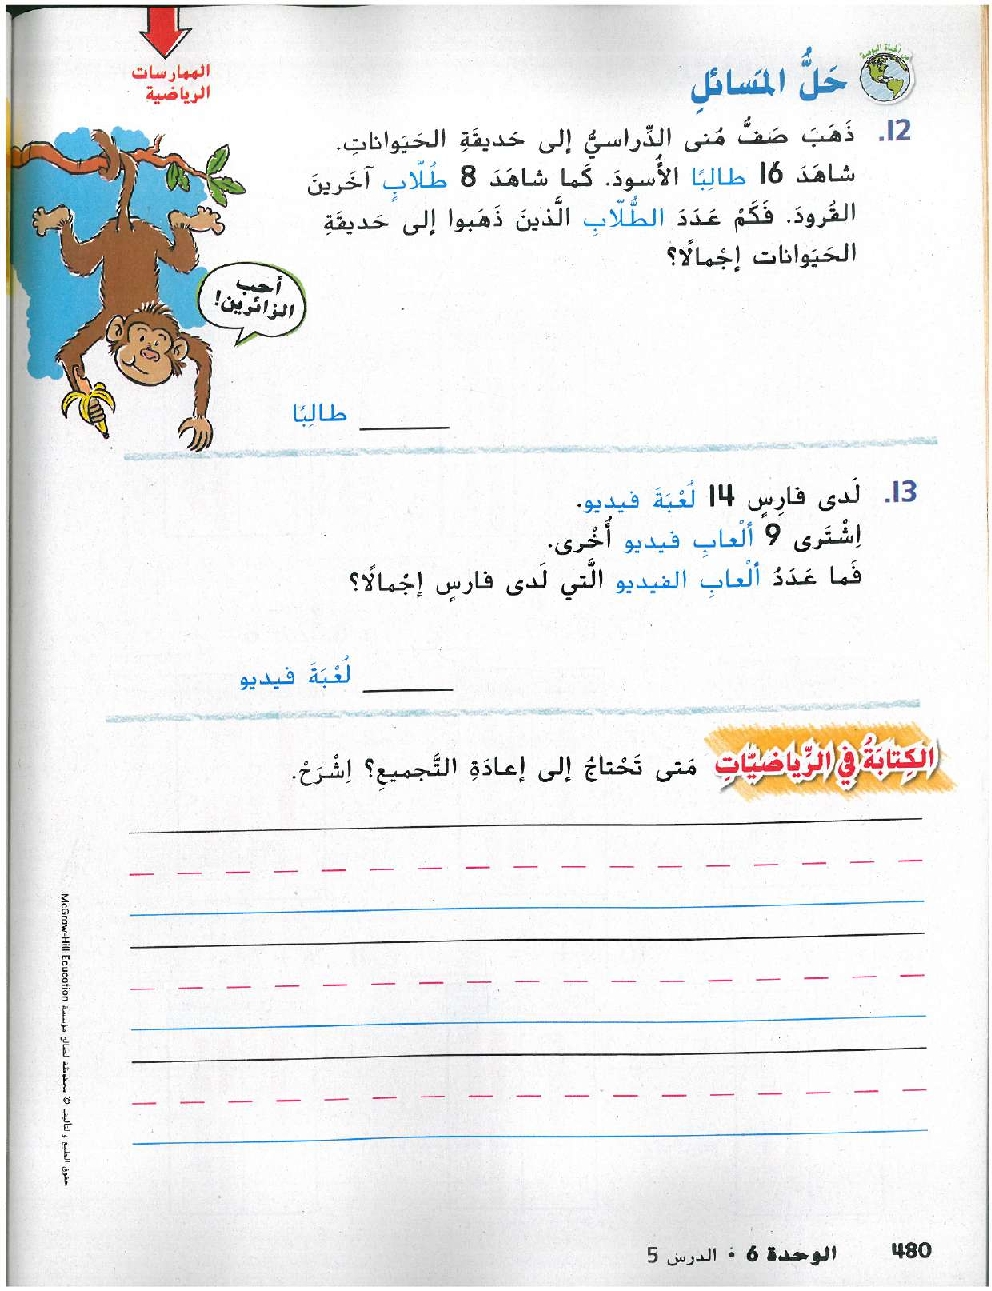 الممارسات
الرياضية
حَلُّ المَسائلِ
12. ذَهَبَ صَفُّ مُنى الدِّراسيُّ إلى حَديقَةِ الحَيَواناتِ.
شاهَدَ 16 طالِبًا الأُسودَ. كَما شاهَدَ 8 طُلّابٍ آخَرينَ
القُرودَ. فَكَمْ عَدَدَ الطُّلّابِ الَّذينَ ذَهَبوا إلى حَديقَةِ
الحَيَوانات إجْمالًا؟
أحب
الزائرين!
_____ طالِبًا
13. لَدى فارِسٍ 14 لُعْبَةَ فيديو.
اِشْتَرى 9 ألْعابِ فيديو أُخْرى.
فَما عَدَدُ ألْعابِ الفيديو الَّتي لَدى فارسٍ إجْمالًا؟
_____ لُعْبَةَ فيديو
الكِتابَةُ في الرِّياضيّاتِ مَتى تَحْتاجُ إلى إعادَةِ التَّجميعِ؟ اِشْرَحْ.
حقوق الطبع والتأليف © محفوظة لصالح مؤسسة McGraw-Hill Education
480 الوحدة 6 • الدرس 5